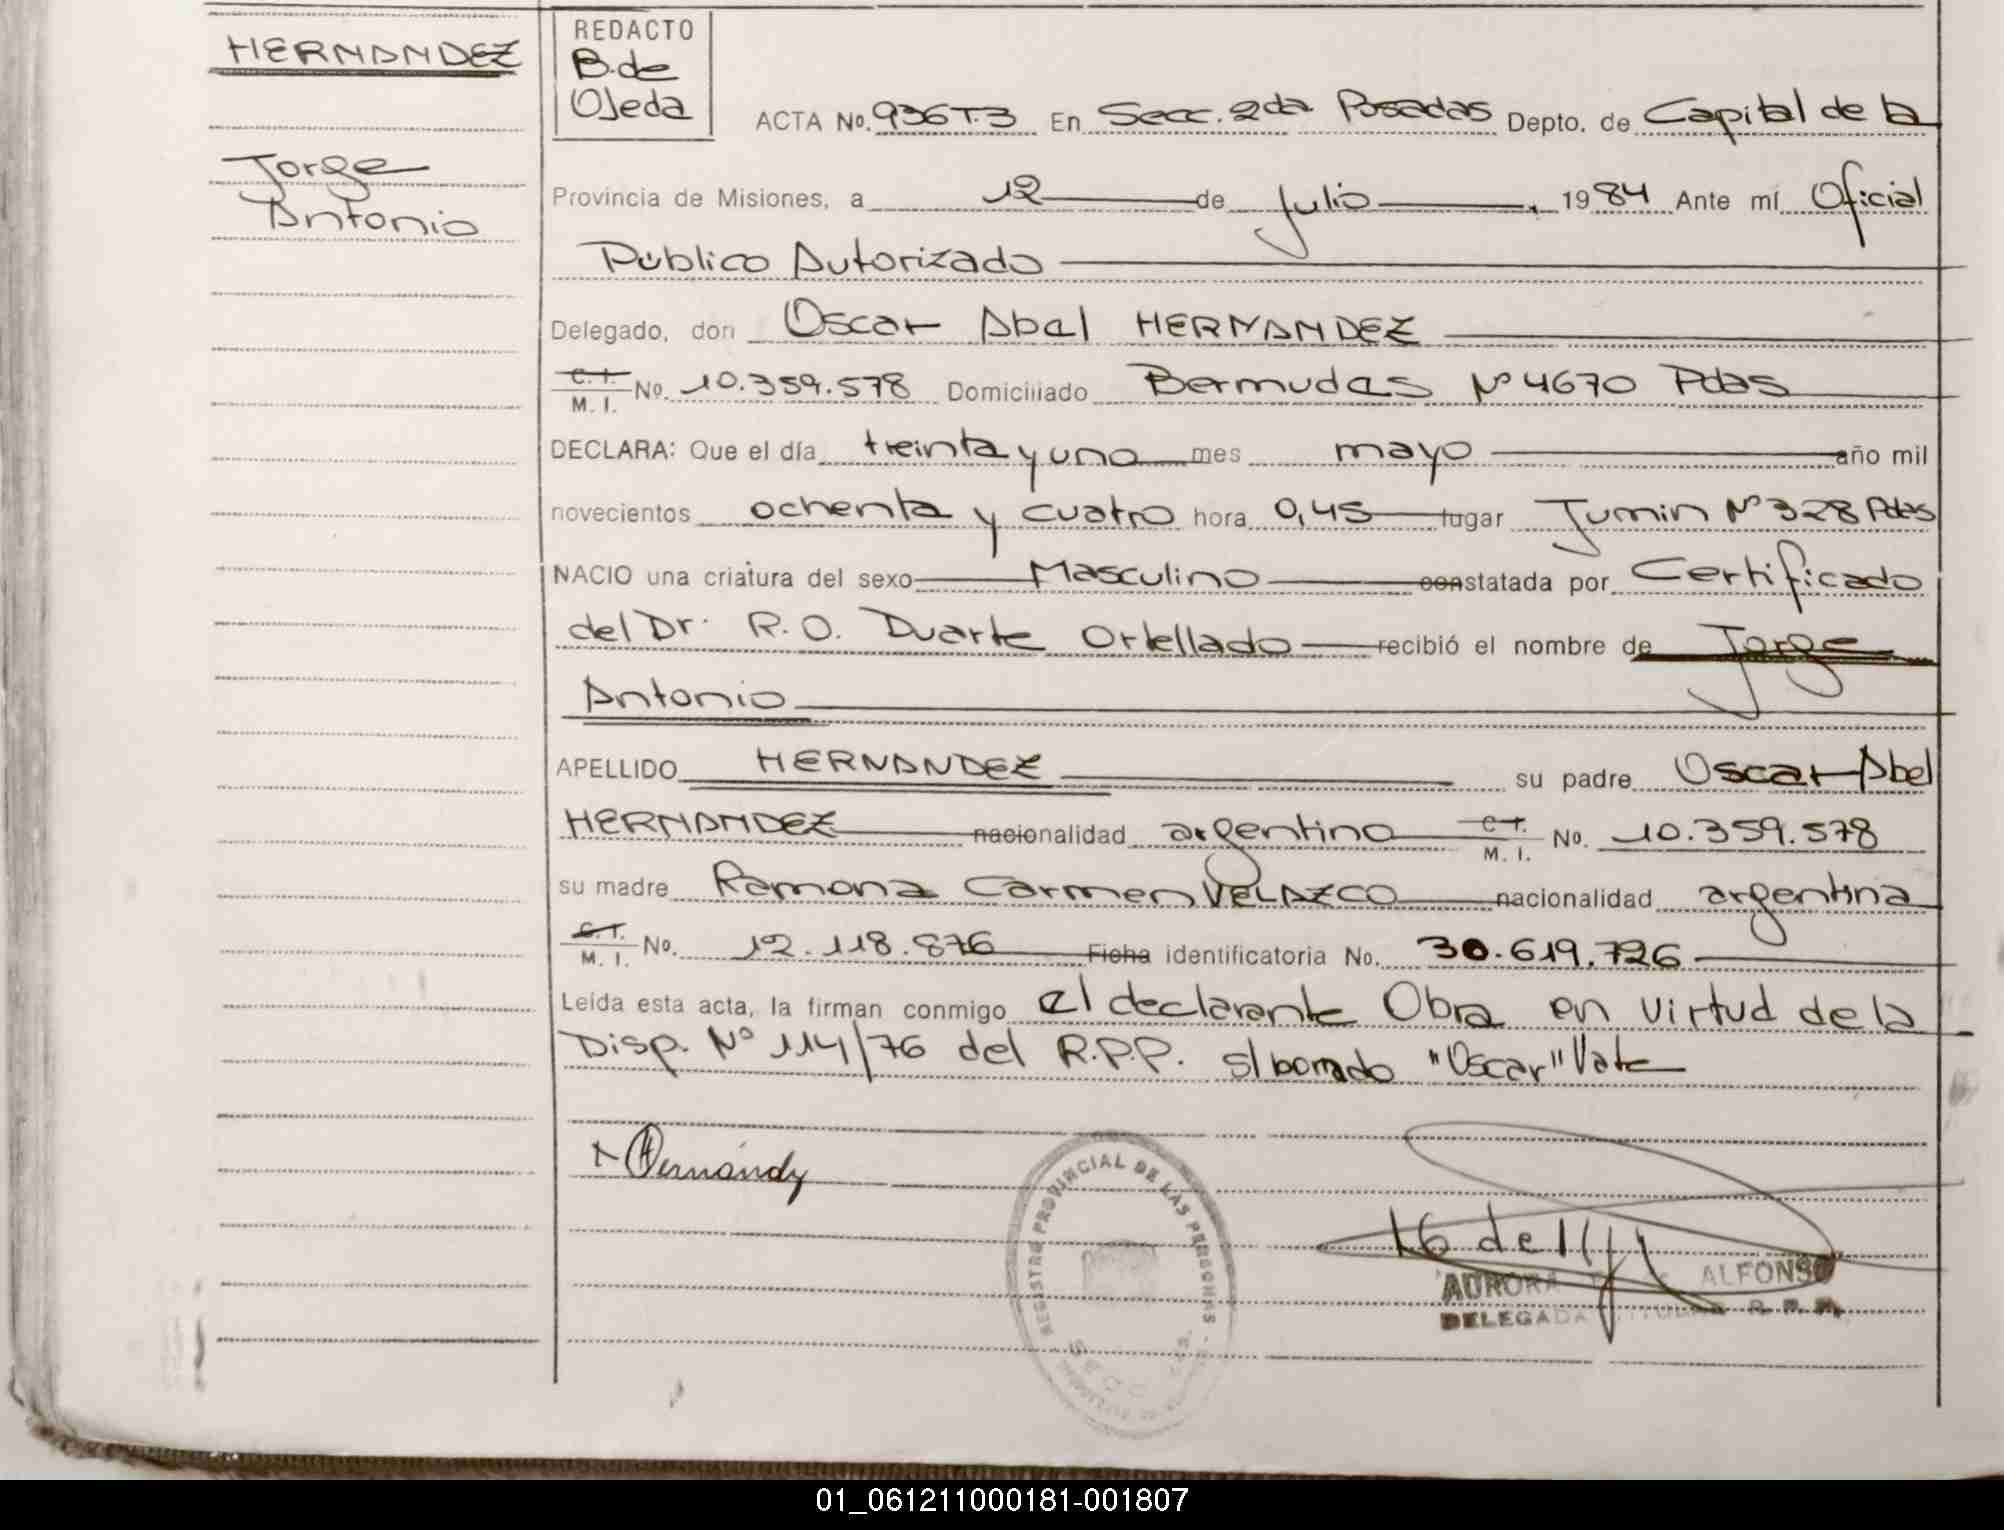 HERNANDEZ
Jorge
Antonio
REDACTO
B. de
Ojeda
ACTA No. 936 T.3 En Secc. 2da Posadas Depto. de Capital de la
Provincia de Misiones, a 12 de Julio 1984 Ante mí Oficial
Público Autorizado
Delegado, don Oscar Abel HERNANDEZ
C. I. M. I. No. 10.359.578 Domiciliado Bermudas Nº 4670 Pdas
DECLARA: Que el día treinta y uno mes mayo año mil
novecientos ochenta y cuatro hora 0,45 lugar Junin Nº 328 Pdas
NACIO una criatura del sexo Masculino constatada por Certificado
del Dr. R.O. Duarte Ortellado recibió el nombre de Jorge
Antonio
APELLIDO HERNANDEZ su padre Oscar Abel
HERNANDEZ nacionalidad argentino C. I. M. I. No. 10.359.578
su madre Ramona Carmen VELAZCO nacionalidad argentina
C. I. M. I. No. 12.118.876 Ficha identificatoria No. 30.619.726
Leída esta acta, la firman conmigo el declarante Obra en virtud de la
Disp. Nº 114/76 del R.P.P. s/borrado "Oscar" Vale
REGISTRO PROVINCIAL DE LAS PERSONAS
SECC
AURORA ALFONSO
DELEGADA TITULAR R. P. P.
01_061211000181-001807